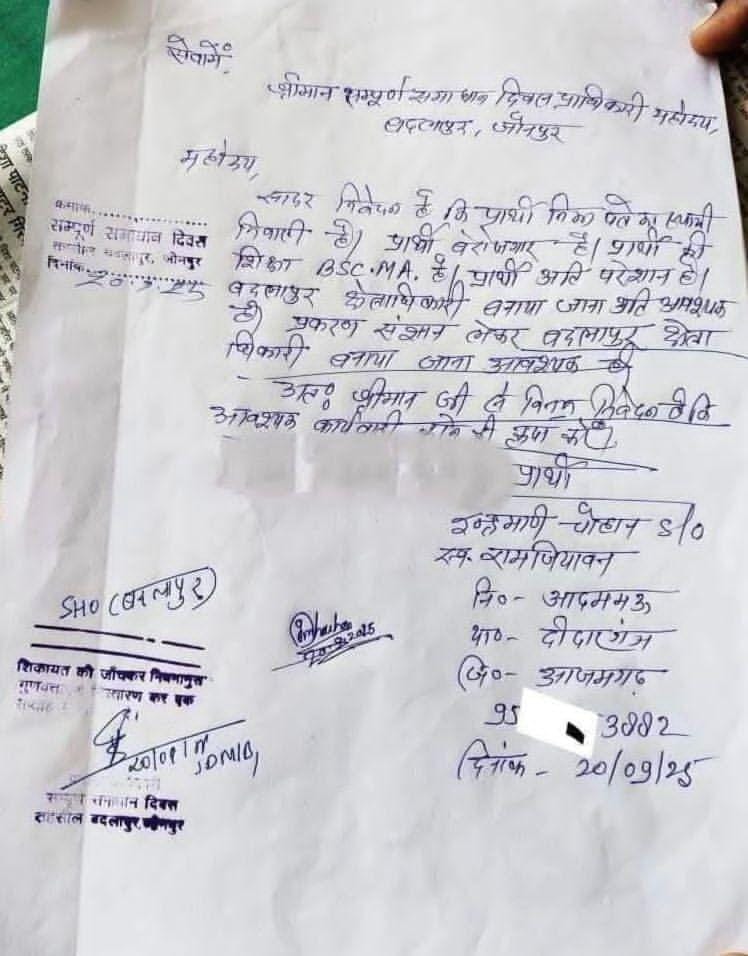 सेवामें,
श्रीमान सम्पूर्ण समाधान दिवस प्राधिकारी महोदय,
बदलापुर, जौनपुर
महोदय,
सादर निवेदन है कि प्रार्थी निम्न पते का स्थायी
निवासी है। प्रार्थी बेरोजगार है। प्रार्थी की
शिक्षा BSC.MA. है। प्रार्थी अति परेशान है।
बदलापुर क्षेत्राधिकारी बनाया जाना अति आवश्यक
है। प्रकरण संज्ञान लेकर बदलापुर क्षेत्रा
धिकारी बनाया जाना आवश्यक है।
अतः श्रीमान जी से विनम्र निवेदन है कि
आवश्यक कार्यवाही करने की कृपा करें।
प्रार्थी
चौहान S/O
स्व. रामजियावन
नि०- आदममऊ
था०- दीदारगंज
जि०- आजमगढ़
95 3882
दिनांक - 20/09/25
क्रमांक
सम्पूर्ण समाधान दिवस
तहसील बदलापुर, जौनपुर
दिनांक
SHO (बदलापुर)
शिकायत की जाँचकर नियमानुसार
कर एक
20/09/
SDM(B)
सम्पूर्ण समाधान दिवस
तहसील बदलापुर, जौनपुर